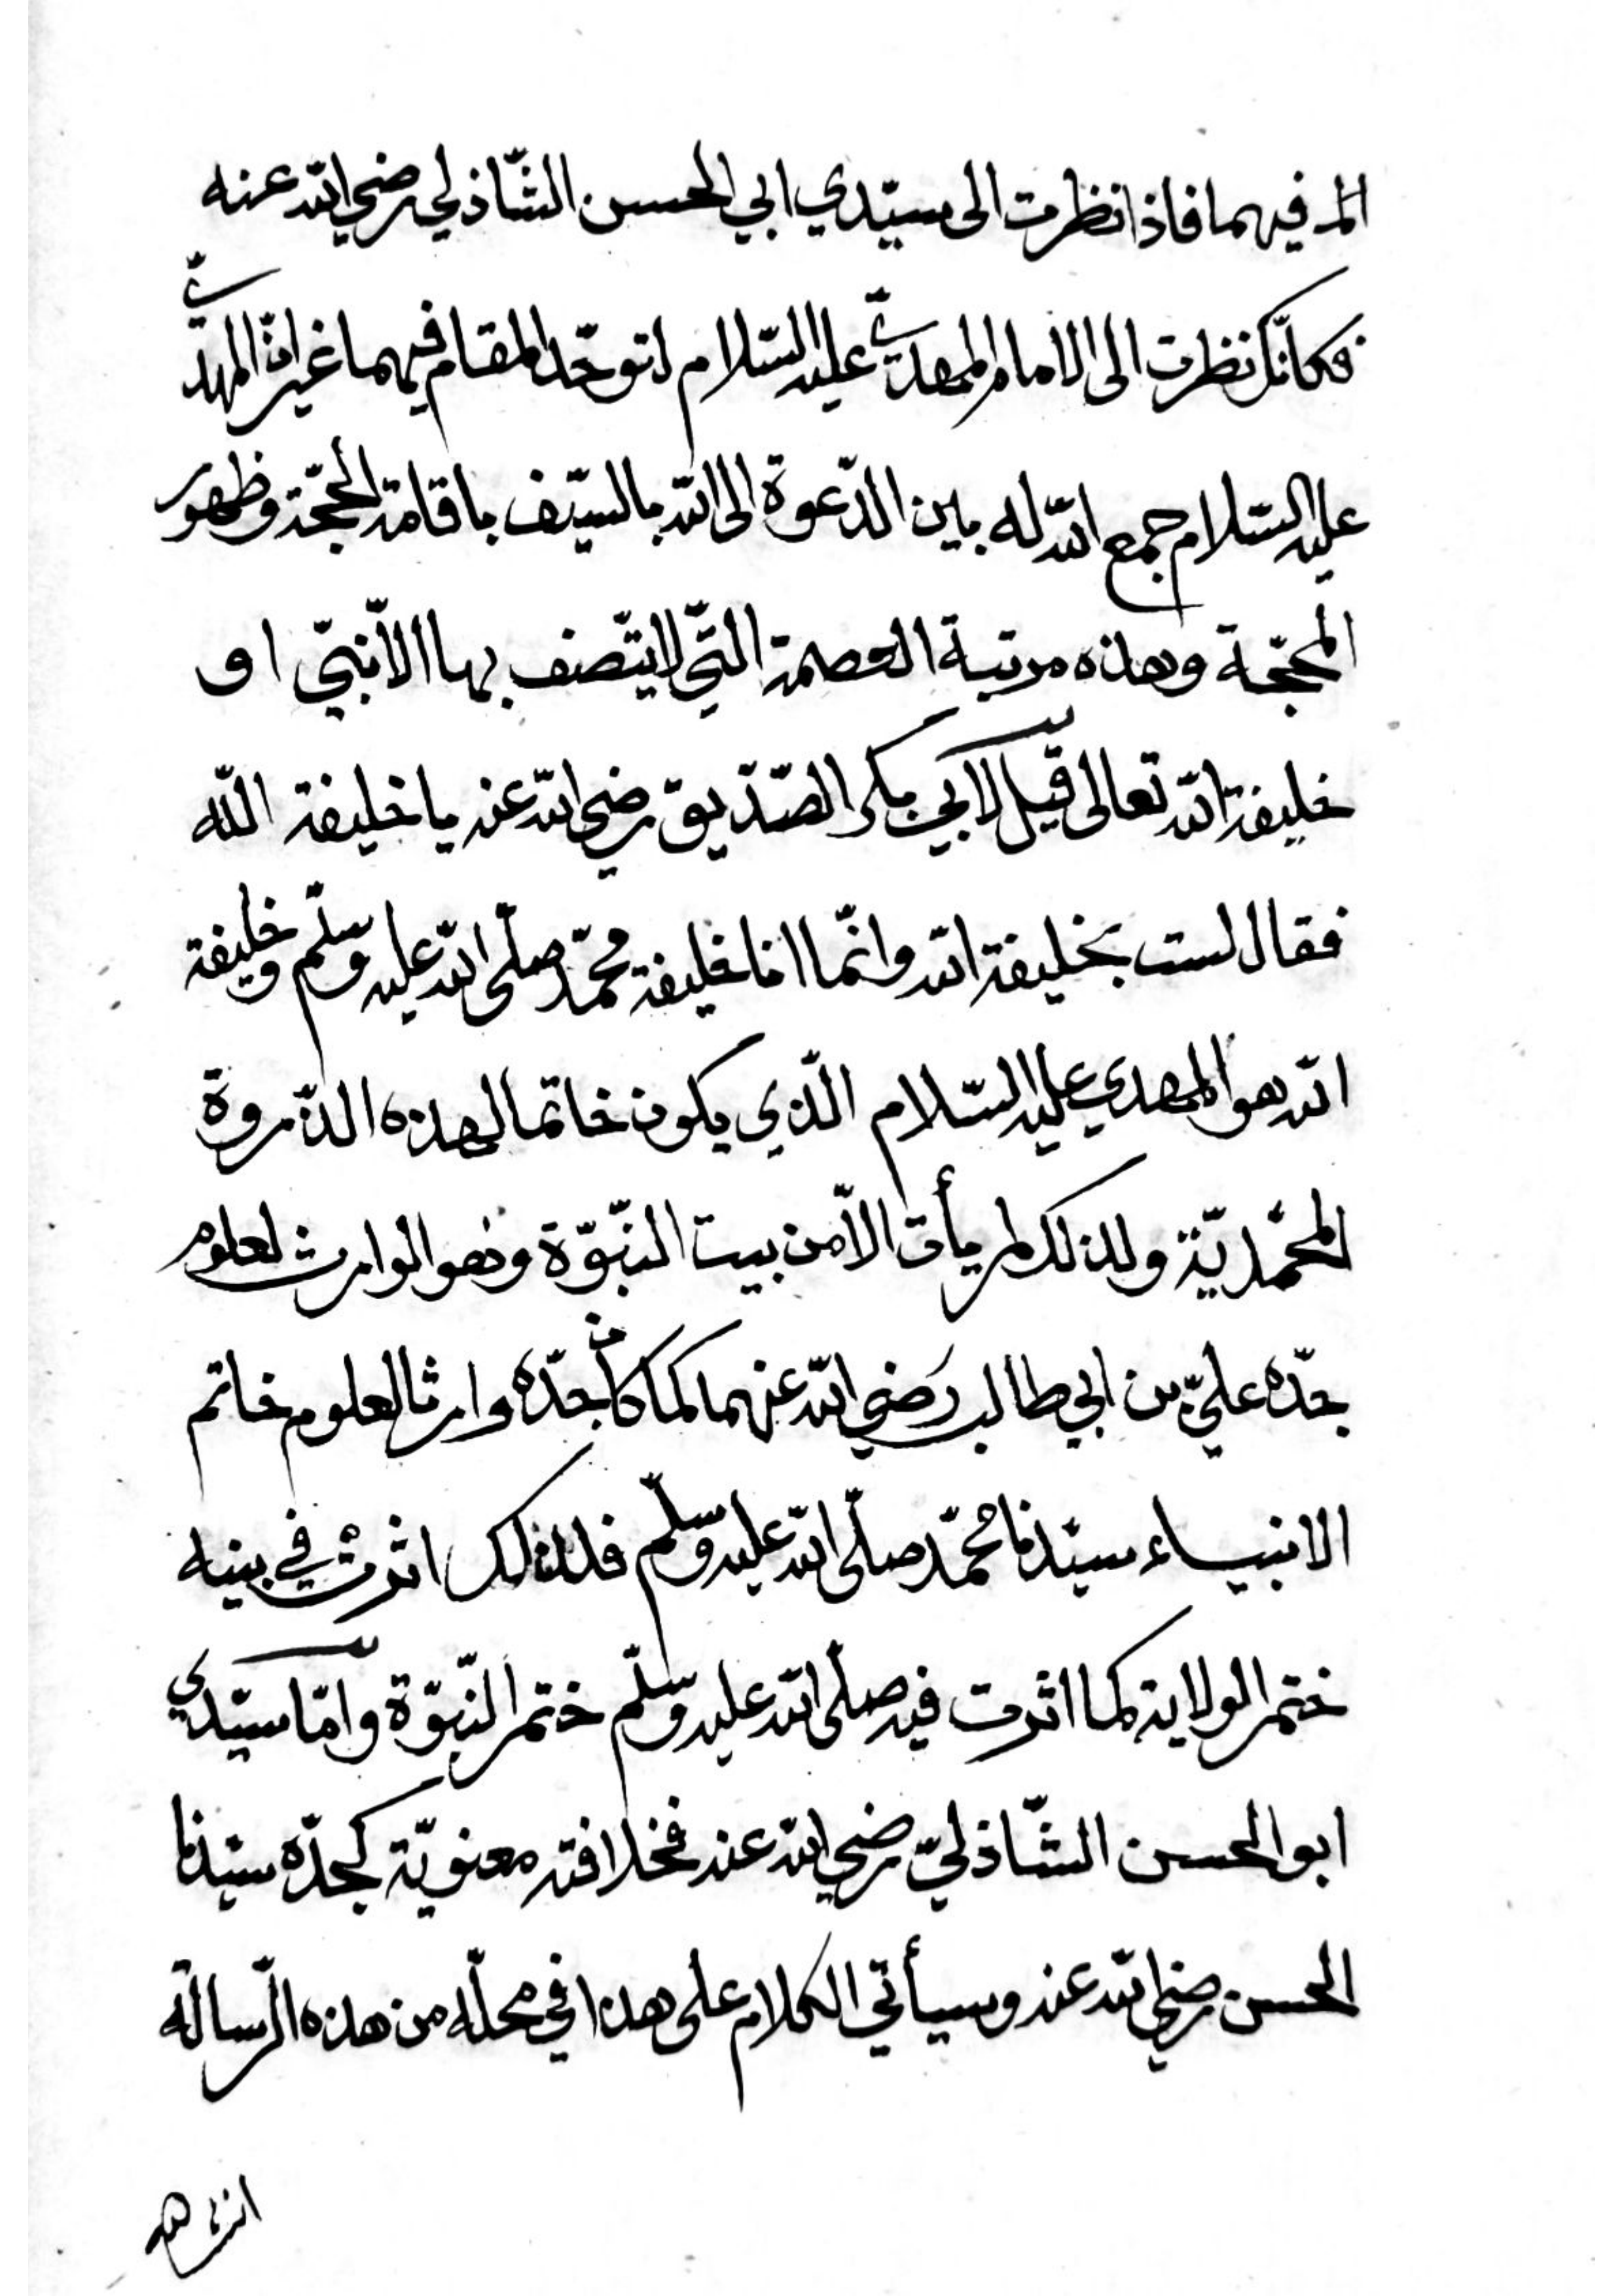 المـ فيهما فاذا نظرت الى سيّدي ابي الحسن الشّاذلي رضي الله عنه
فكانّك نظرت الى الامام المهديّ عليه السّلام لتوحّد المقام فيهما غير انّ المهديّ
عليه السّلام جمع الله له بين الدّعوة الى الله بالسّيف باقامة الحجّة وظهور
المحجّة وهذه مرتبة العصمة التّي لا يتّصف بها الّا نبيّ او
خليفة الله تعالى قيل لابي بكر الصّدّيق رضي الله عنه يا خليفة اللّه
فقال لست بخليفة الله وانّما انا خليفة محمّد صلّى الله عليه وسلّم وخليفة
الله هو المهدي عليه السّلام الّذي يكون خاتما لهذه الذّروة
المحمّديّة ولذلك لم يأت الّا من بيت النّبوّة وهو الوارث لعلوم
جدّه عليّ بن ابي طالب رَضي الله عنهما كما كان جدّه وارثا لعلوم خاتم
الانبياء سيّدنا محُمّد صلّى الله عليه وسلّم فلذلك اثرتْ في بنيه
ختم الولاية كما اثرت فيه صلّى الله عليه وسلّم ختم النّبوّة وامّا سيّدي
ابو الحسن الشّاذليّ رضي الله عنه فخلافته معنويّة كجدّه سيّدنا
الحسن رضي الله عنه وسيأتي الكلام على هذا في محلّه من هذه الرّسالة